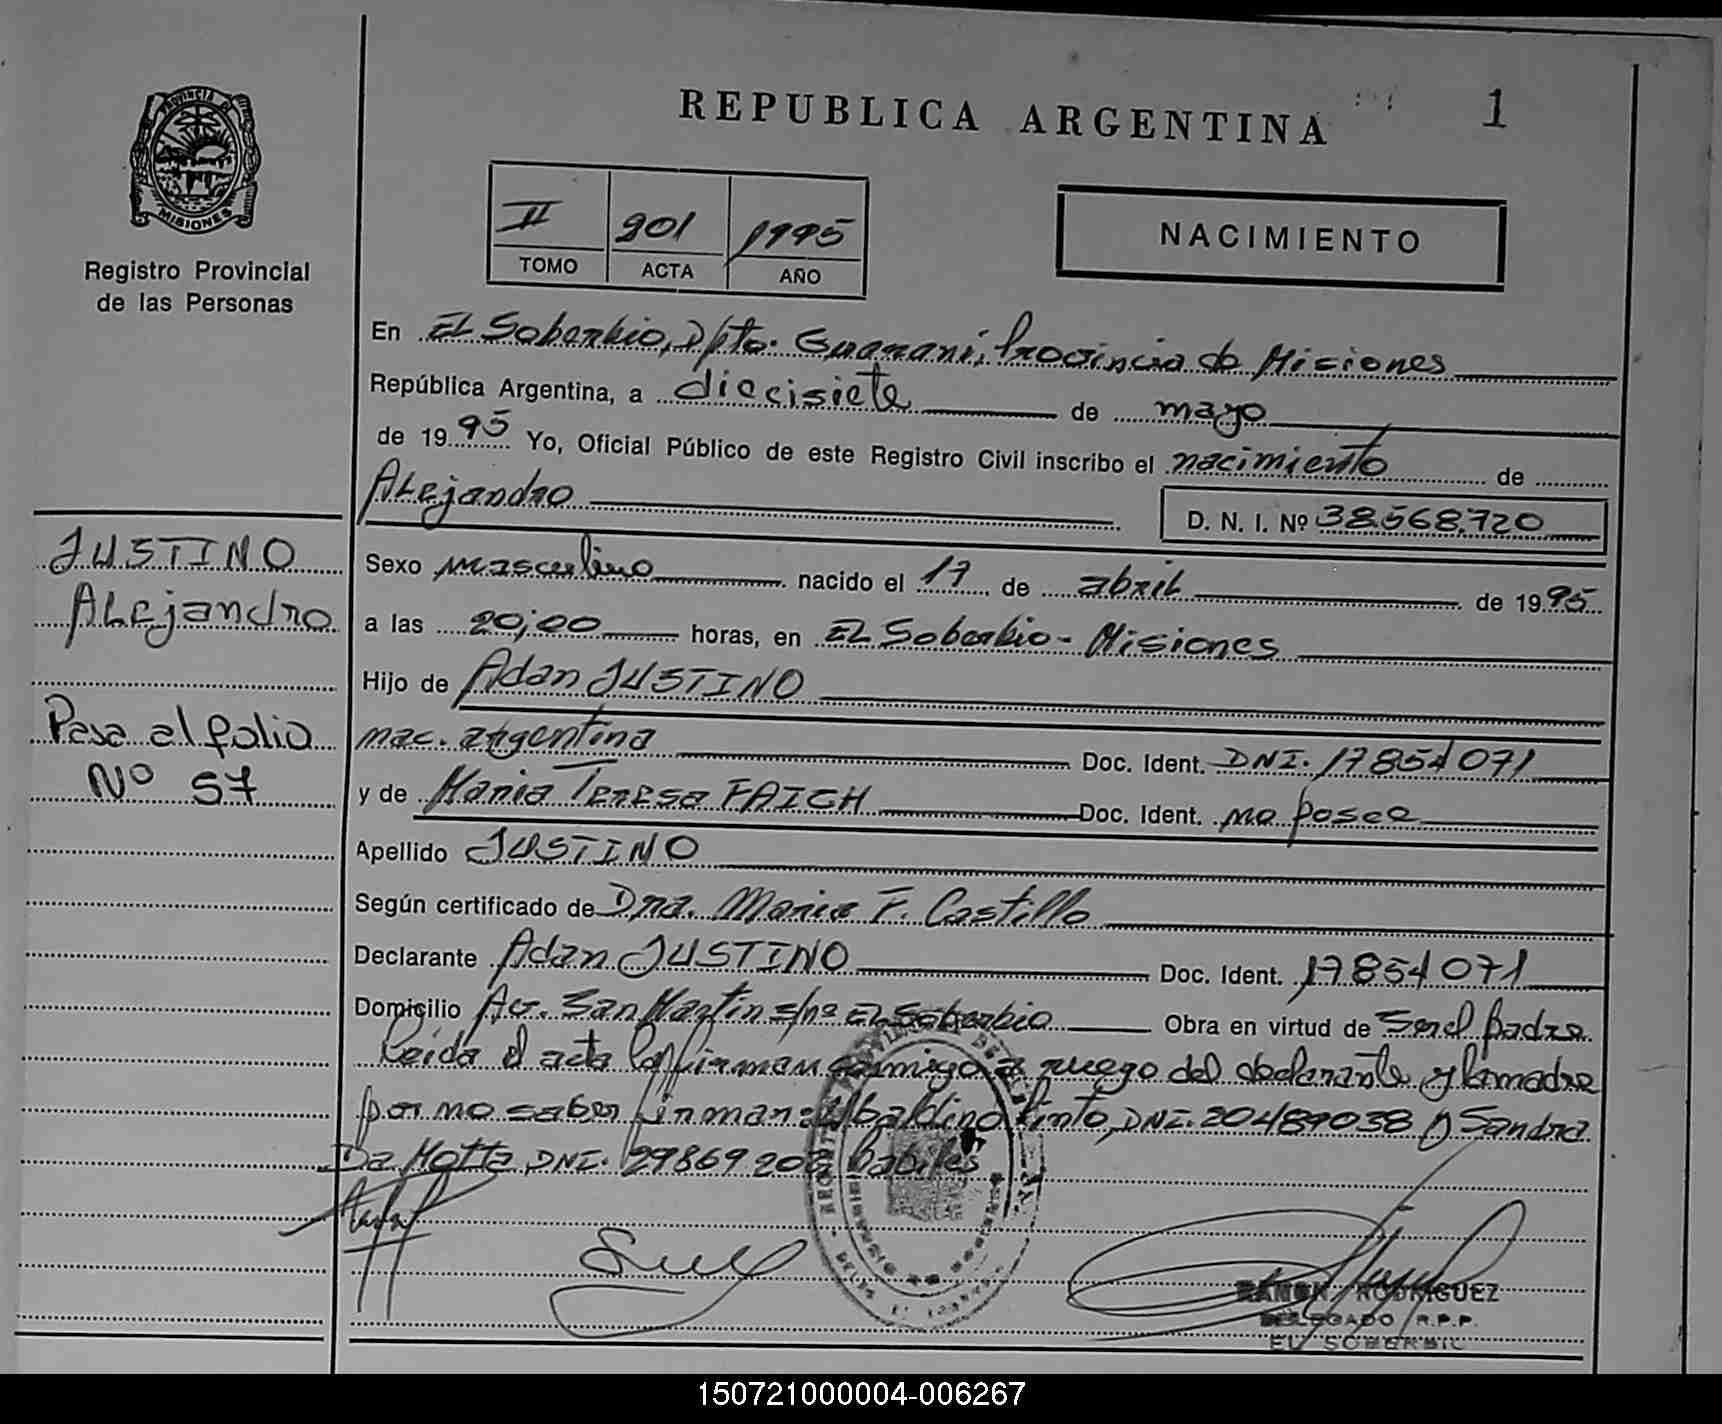 REPUBLICA ARGENTINA
1
PROVINCIA DE
MISIONES
Registro Provincial
de las Personas
II 901 1995
TOMO ACTA AÑO
NACIMIENTO
En EL Soberbio, Dpto. Guarani, Provincia de Misiones
República Argentina, a diecisiete de mayo
de 1995 Yo, Oficial Público de este Registro Civil inscribo el nacimiento de
Alejandro D. N. I. Nº 38.568.720
JUSTINO
Alejandro
Pasa al folio
Nº 57
Sexo masculino nacido el 17 de abril de 1995
a las 20;00 horas, en EL Soberbio - Misiones
Hijo de Adan JUSTINO
nac. argentina Doc. Ident. DNI. 17854071
y de Maria Teresa FAICH Doc. Ident. no posee
Apellido JUSTINO
Según certificado de Dra. Maria F. Castillo
Declarante Adan JUSTINO Doc. Ident. 17854071
Domicilio Av. San Martin s/nº EL Soberbio Obra en virtud de Ser el padre
Leida el acta la firman conmigo a ruego del declarante y la madre
por no saber firmar: Ubaldino Pinto, DNI. 20489038 y Sandra
Da Motta, DNI. 29869 habiles
RAMON RODRIGUEZ
DELEGADO R.P.P.
EL SOBERBIO
150721000004-006267